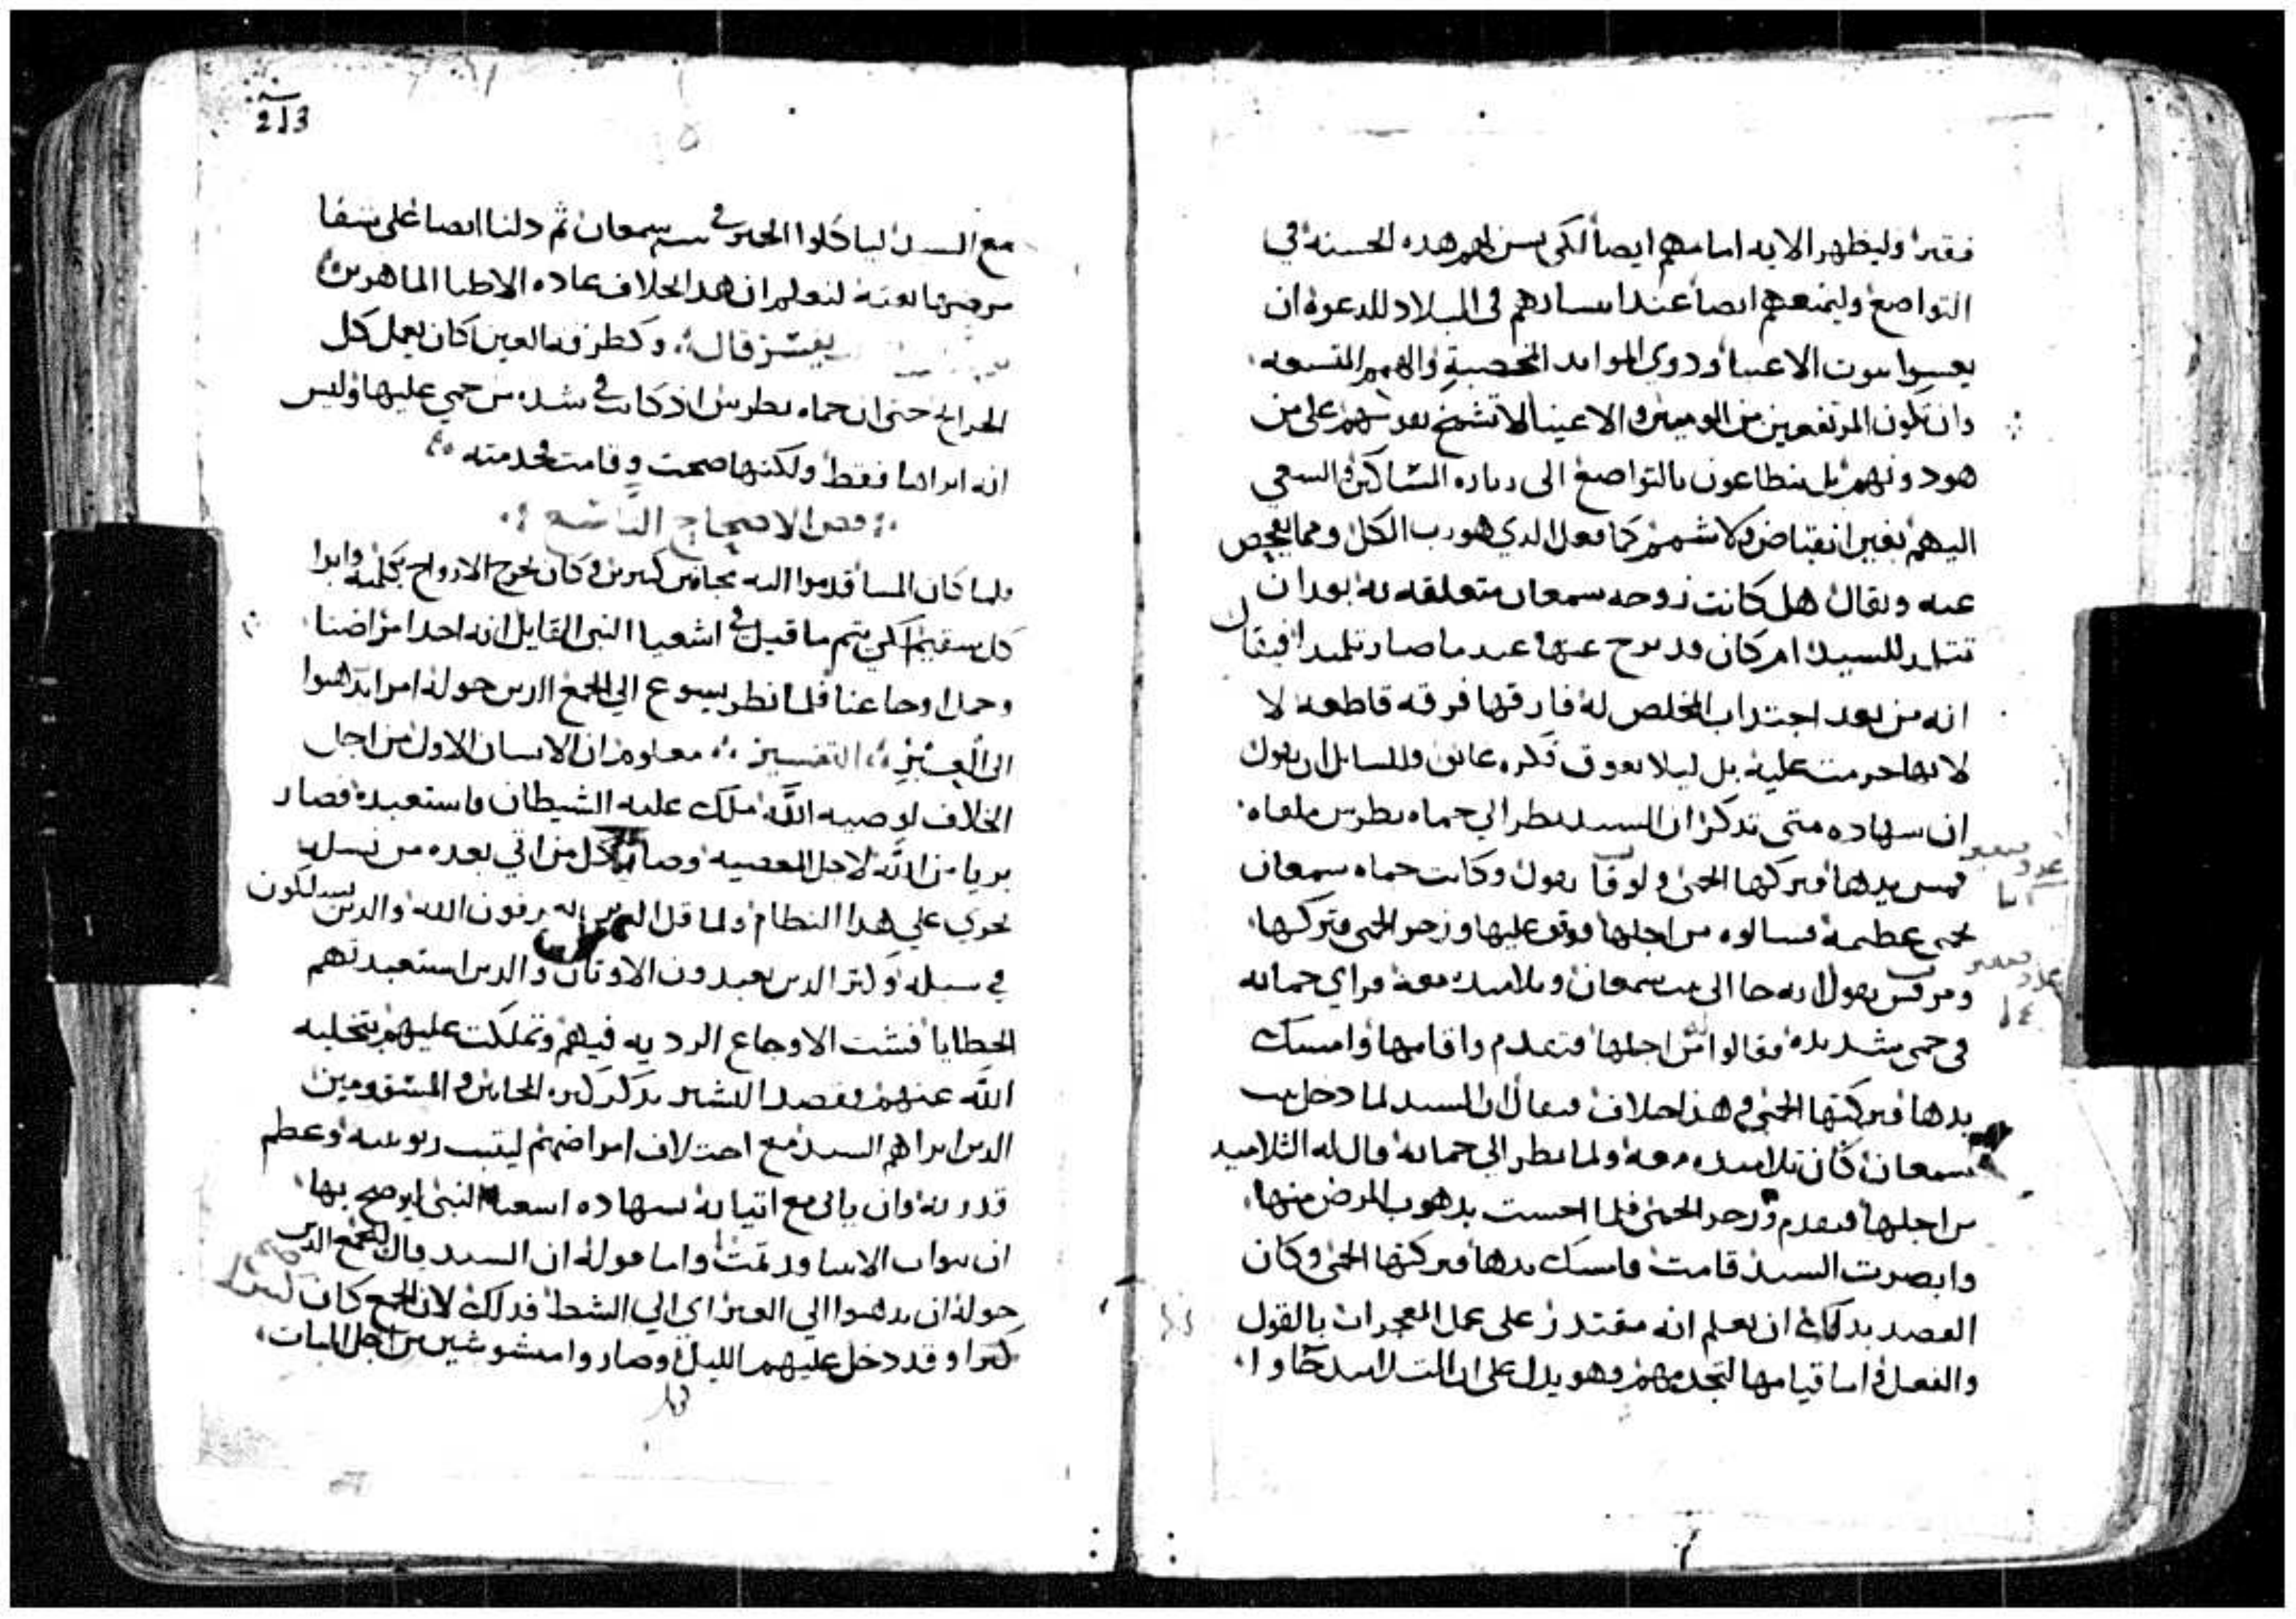 فقيرا وليظهر الايه امامهم ايضا لكى يسن لهم هذه الحسنه في
التواضع وليمنعهم ايضا عند انتشارهم في البلاد للدعوة ان
بيوت الاغنيا وذوي الموايد الخصبة والهمم المتسعه
وان تكون المرتفعين من المومنين والاغنيا لا تشمخ نفوسهم على من
هو دونهم بل يتطاعون بالتواضع الى زياره المساكين والسعي
اليهم بغير انقباض ولا شمم كما فعل الذي هو رب الكل ومما يفحص
عنه ويقال هل كانت زوجه سمعان متعلقه به بعد ان
تتلمد للسيد ام كان قد نزح عنها عند ما صار تلميدا فيقال
انه من بعد اجتداب المخلص له فارقها فرقه قاطعه لا
لانها حرمت عليه بل ليلا يعوق فكره عايق وللسايل ان يقول
ان شهاده متى تذكر ان السيد نظر الي حماه بطرس ملقاه
فمس يدها فتركها الحمى ولوقا يقول وكانت حماه سمعان
بحمى عظيمة فسالوه من اجلها فوقف عليها وزجر الحمى فتركها
ومرقس يقول انه جا الى بيت سمعان وتلاميده معه فراي حماته
في حمى شديده فقالوا من اجلها فتقدم واقامها وامسك
يدها فتركتها الحمى وفي هذا خلاف فيقال ان السيد لما دخل بيت
سمعان كان تلاميده معه ولما نظر الى حماته قال له التلاميد
من اجلها فتقدم وزجر الحمى فلما احست بدهوب المرض منها
وابصرت السيد قامت فامسك يدها فتركتها الحمى وكان
القصد بدلك ان يعلم انه مقتدر على عمل المعجزات بالقول
والفعل واما قيامها لتخدمهم فهو يدل على ان التلاميد جاوا
213
مع السيد لياكلوا الخبز في بيت سمعان ثم دلنا ايضا على شفا
مرضها بغتة لنعلم ان هدا بخلاف عاده الاطبا الماهرين
يفسر قال وكطرفة العين كان يعمل كل
الجرايح حتى ان حماه بطرس اذ كانت في شده من حمى عليها وليس
انه ابراها فقط ولكنها صحت وقامت لخدمته
فص الاصحاح التاسع
فلما كان المسا قدموا اليه مجانين كثيرين وكان يخرج الارواح بكلمه وابرا
كل سقيم لكي يتم ما قيل في اشعيا النبي القايل انه اخد امراضنا
وحمل اوجاعنا فلما نظر يسوع الي الجمع الدين حوله امر ان يدهبوا
الى العبر التفسير معلوم ان الانسان الاول من اجل
الخلاف لوصيه الله ملك عليه الشيطان واستعبده فصار
بريا من الله لاجل المعصيه وصار كل من اتي بعده من نسله
يجري علي هدا النظام ولما قل الدين يعرفون الله والدين يسلكون
في سبله وكثر الدين يعبدون الاوتان والدين استعبدتهم
الخطايا فشت الاوجاع الرديه فيهم وتملكت عليهم بتخليه
الله عنهم فقصد البشير بدكر كثره المجانين والمسقومين
الدين ابراهم السيد مع اختلاف امراضهم ليتبت ربوبيته وعظم
قدرته وان ياتي مع اتيانه بشهاده اشعيا النبي ليوضح بها
ان نبوات الانبيا قد تمت واما قوله ان السيد قال للجمع الدين
حوله ان يدهبوا الي العبر اي الي الشط فدلك لان الجمع كان
كثيرا وقد دخل عليهم الليل وصاروا مشوشين من اجل المبات